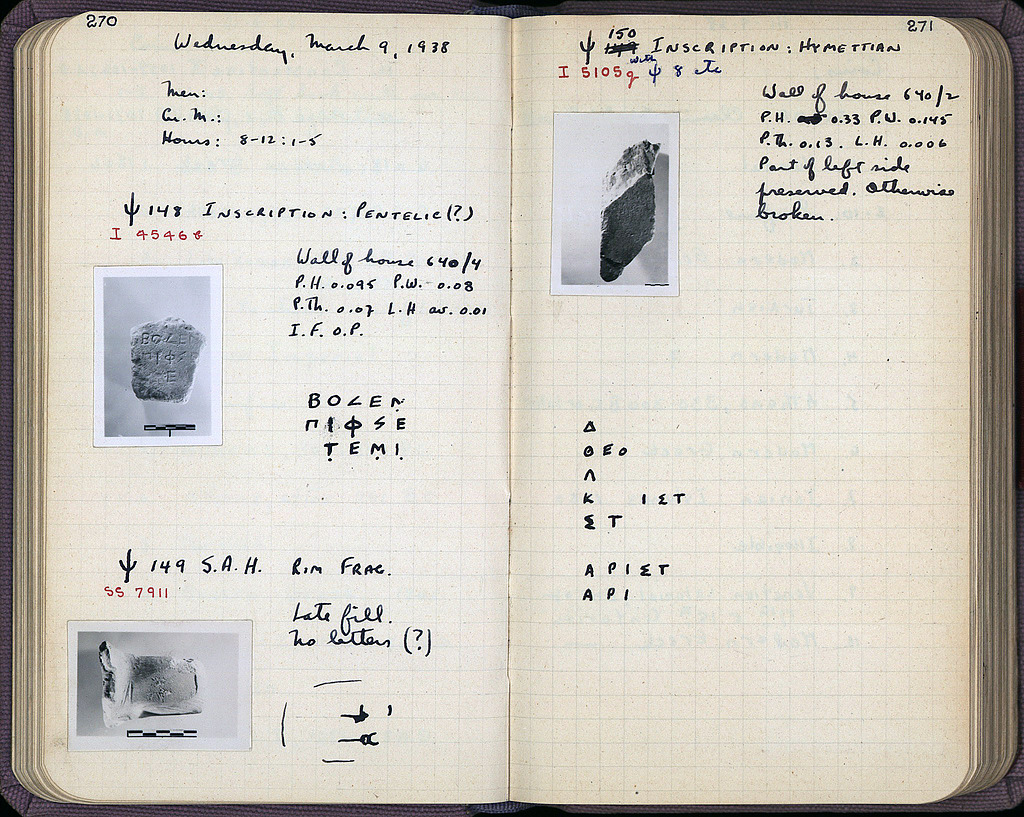 270
Wednesday, March 9, 1938
Men:
Gr. M.:
Hours: 8-12 : 1-5
ψ 148 INSCRIPTION: PENTELIC(?)
I 4546 b
Wall of house 640/4
P.H. 0.095 P.W. 0.08
P.Th. 0.07 L.H av. 0.01
I.F. O.P.
ΒΟΖΕΝ
ΠΙΦSΕ
ΤΕΜΙ
ψ 149 S.A.H. RIM FRAG.
SS 7911
Late fill.
No letters (?)
271
150
ψ INSCRIPTION: HYMETTIAN
I 5105g with ψ 8 etc
Wall of house 640/2
P.H. 0.33 P.W. 0.145
P.Th. 0.13. L.H. 0.006
Part of left side
preserved. Otherwise
broken.
Δ
ΘΕΟ
Λ
Κ ΙΣΤ
ΣΤ
ΑΡΙΣΤ
ΑΡΙ